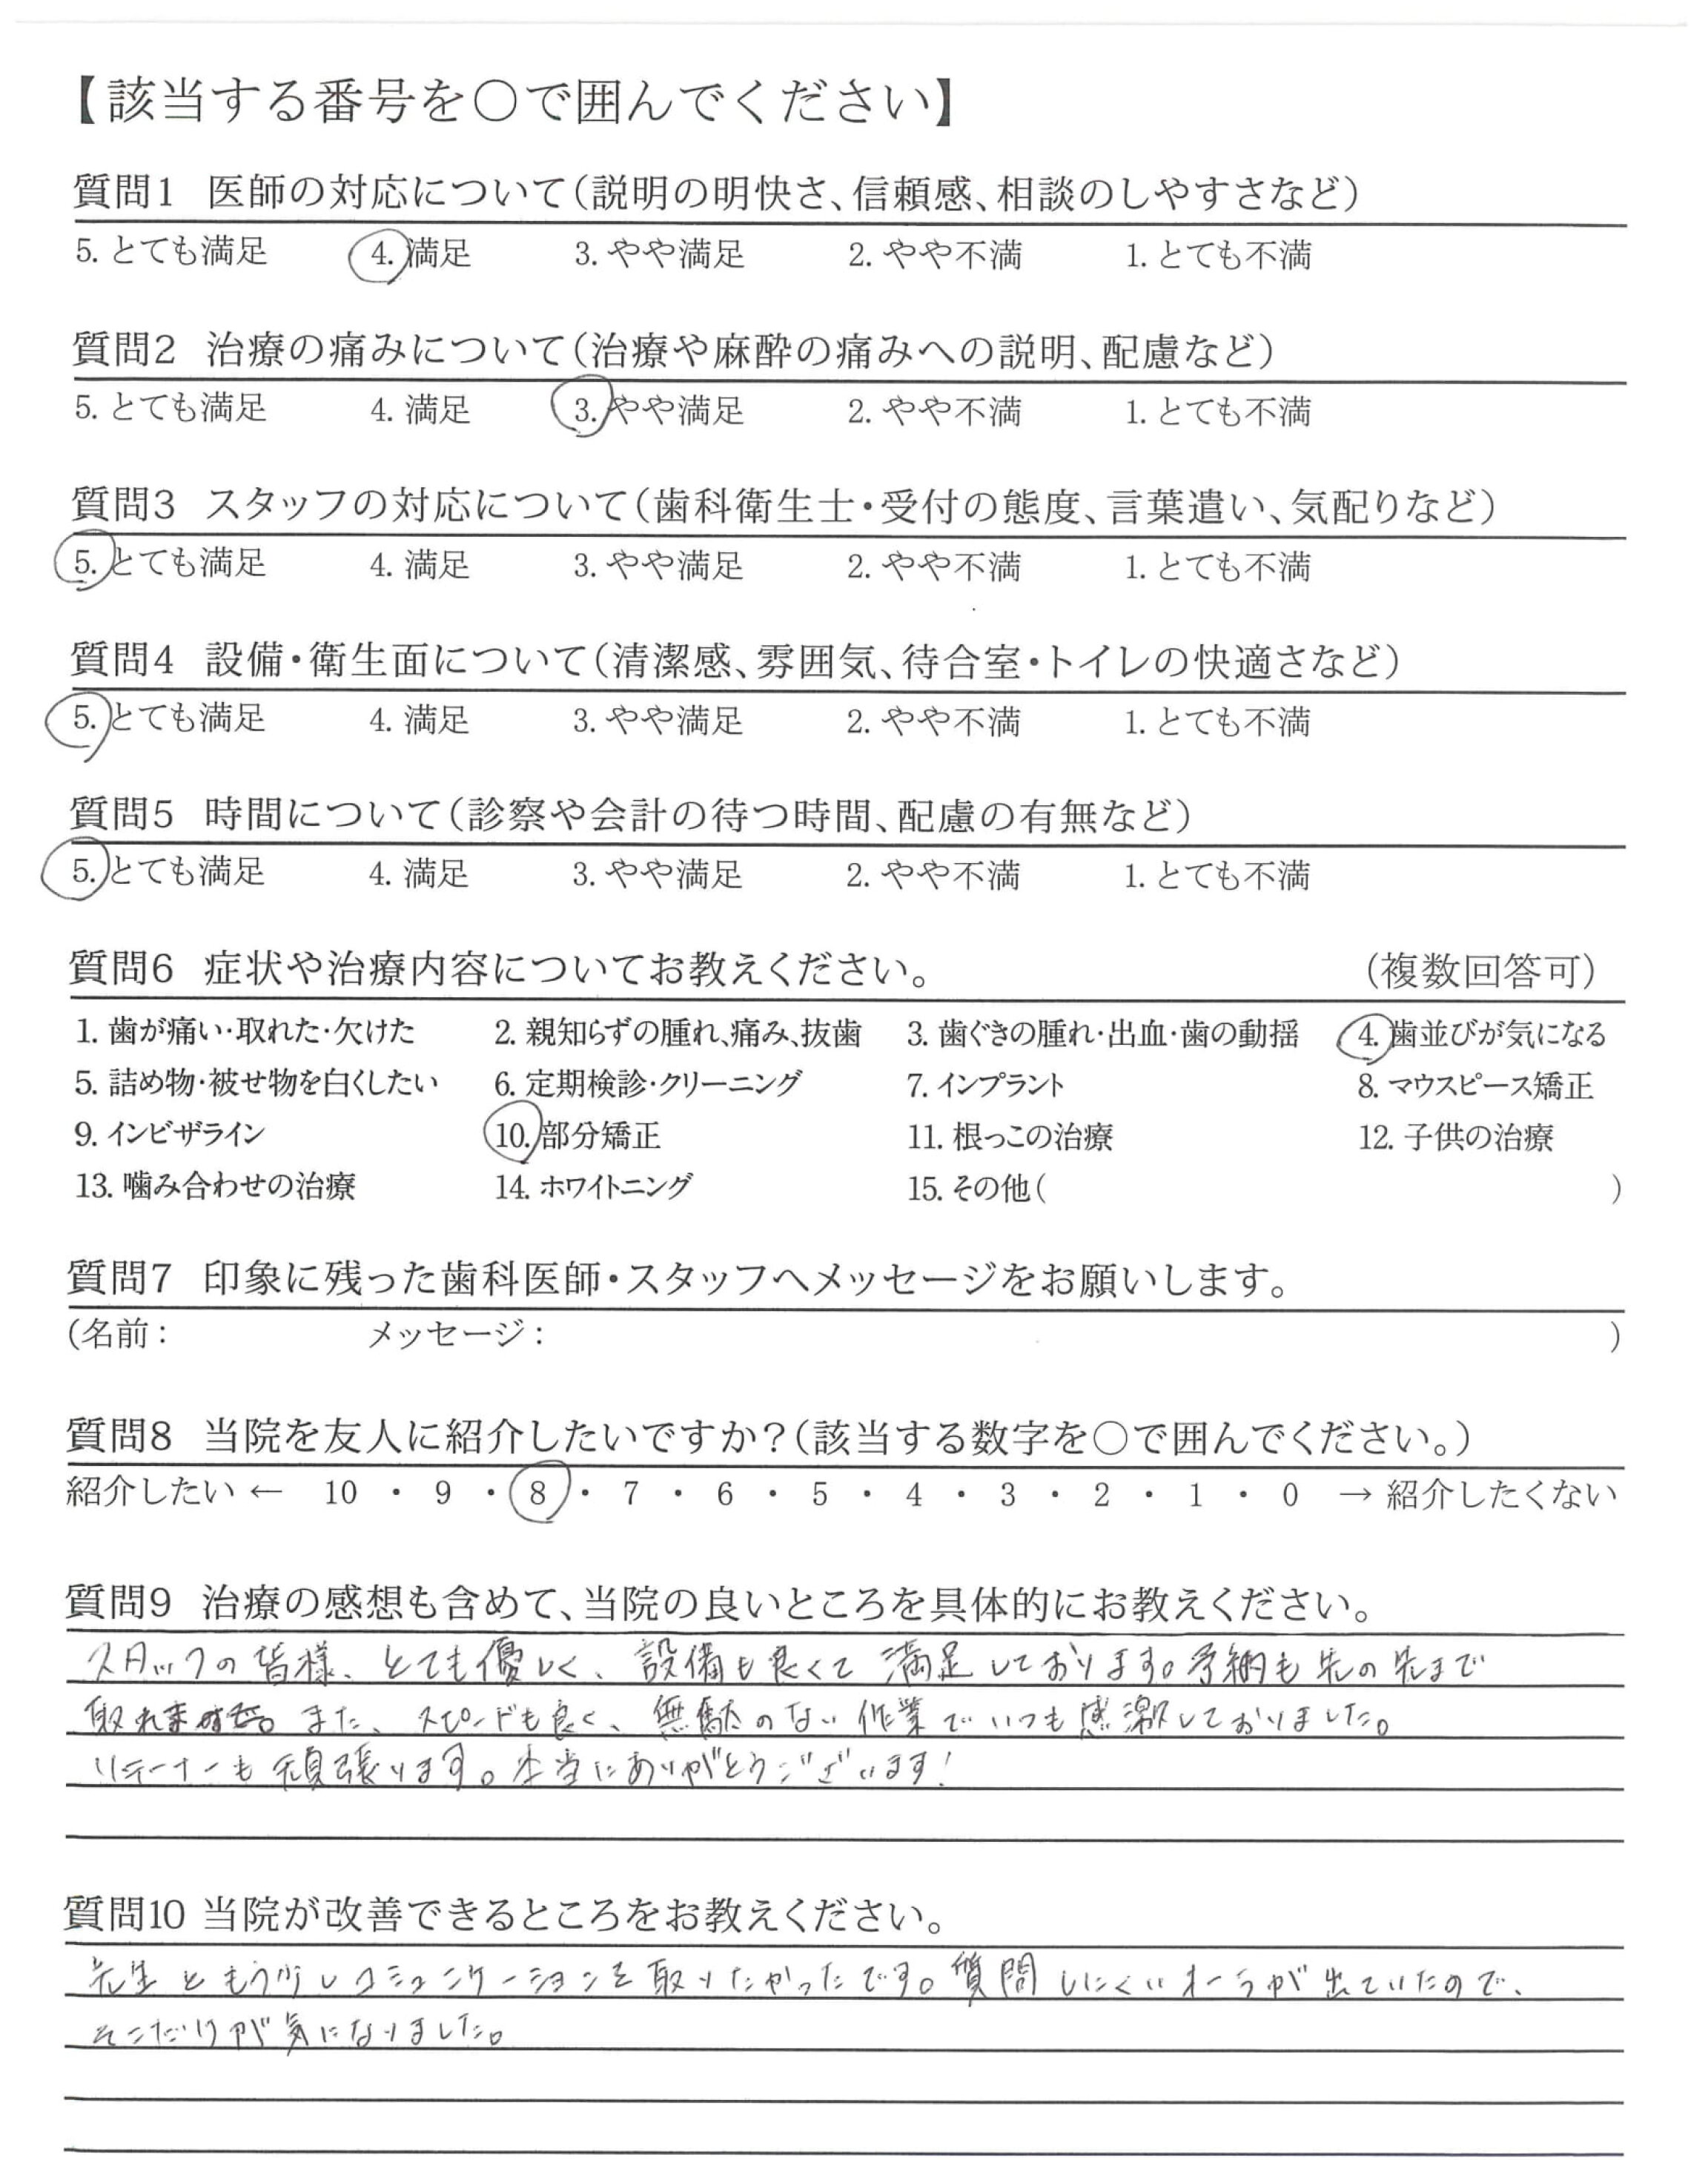 【該当する番号を○で囲んでください】
質問1 医師の対応について(説明の明快さ、信頼感、相談のしやすさなど)
5. とても満足 4. 満足 3. やや満足 2. やや不満 1. とても不満
質問2 治療の痛みについて(治療や麻酔の痛みへの説明、配慮など)
5. とても満足 4. 満足 3. やや満足 2. やや不満 1. とても不満
質問3 スタッフの対応について(歯科衛生士・受付の態度、言葉遣い、気配りなど)
5. とても満足 4. 満足 3. やや満足 2. やや不満 1. とても不満
質問4 設備・衛生面について(清潔感、雰囲気、待合室・トイレの快適さなど)
5. とても満足 4. 満足 3. やや満足 2. やや不満 1. とても不満
質問5 時間について(診察や会計の待つ時間、配慮の有無など)
5. とても満足 4. 満足 3. やや満足 2. やや不満 1. とても不満
質問6 症状や治療内容についてお教えください。 (複数回答可)
1. 歯が痛い・取れた・欠けた 2. 親知らずの腫れ、痛み、抜歯 3. 歯ぐきの腫れ・出血・歯の動揺 4. 歯並びが気になる
5. 詰め物・被せ物を白くしたい 6. 定期検診・クリーニング 7. インプラント 8. マウスピース矯正
9. インビザライン 10. 部分矯正 11. 根っこの治療 12. 子供の治療
13. 噛み合わせの治療 14. ホワイトニング 15. その他( )
質問7 印象に残った歯科医師・スタッフへメッセージをお願いします。
(名前: メッセージ: )
質問8 当院を友人に紹介したいですか?(該当する数字を○で囲んでください。)
紹介したい ← 10 ・ 9 ・ 8 ・ 7 ・ 6 ・ 5 ・ 4 ・ 3 ・ 2 ・ 1 ・ 0 → 紹介したくない
質問9 治療の感想も含めて、当院の良いところを具体的にお教えください。
スタッフの皆様、とても優しく、設備も良くて満足しております。予約も先の先まで
取れま 。また、スピードも良く、無駄のない作業でいつも感激しておりました。
リテーナーも頑張ります。本当にありがとうございます!
質問10 当院が改善できるところをお教えください。
先生ともう少しコミュニケーションを取りたかったです。質問しにくいオーラが出ていたので、
そこだけが気になりました。